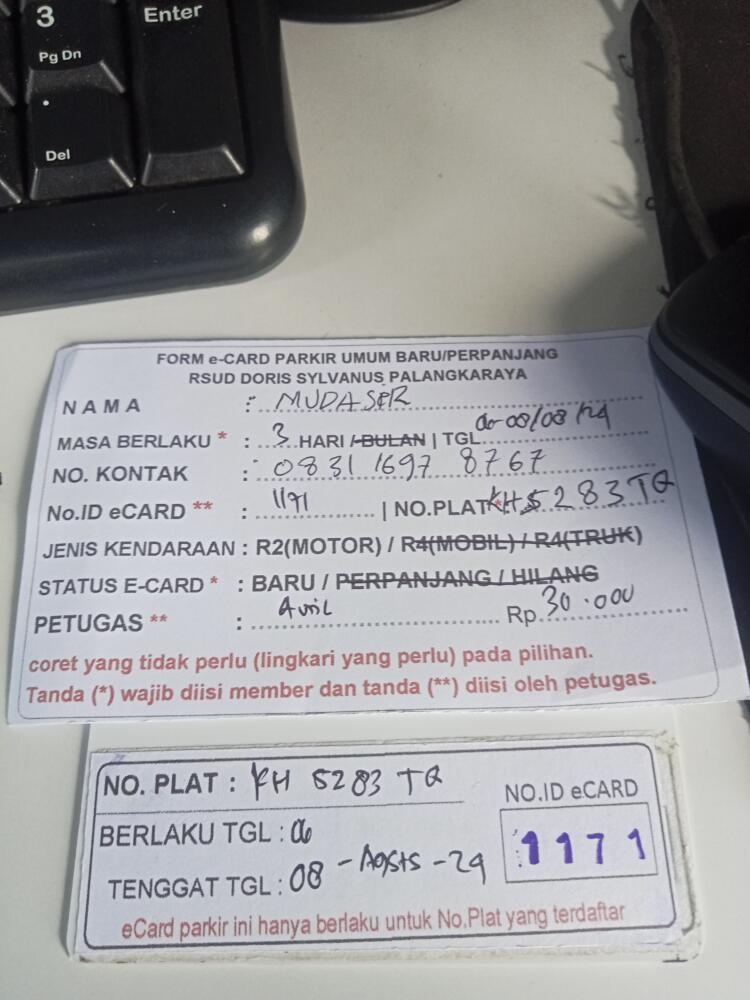 3
Enter
Pg Dn
.
Del
FORM e-CARD PARKIR UMUM BARU/PERPANJANG
RSUD DORIS SYLVANUS PALANGKARAYA
NAMA : MUDASER
MASA BERLAKU * : 3 HARI / BULAN | TGL 06-08/08/24
NO. KONTAK : 0831 1697 8767
No.ID eCARD ** : 1171 | NO.PLAT* KH 5283 TQ
JENIS KENDARAAN : R2(MOTOR) / R4(MOBIL) / R4(TRUK)
STATUS E-CARD * : BARU / PERPANJANG / HILANG
PETUGAS ** : Avril Rp. 30.000
coret yang tidak perlu (lingkari yang perlu) pada pilihan.
Tanda (*) wajib diisi member dan tanda (**) diisi oleh petugas.
NO. PLAT : KH 5283 TQ
NO.ID eCARD
1171
BERLAKU TGL : 06
TENGGAT TGL : 08 - Agsts - 24
eCard parkir ini hanya berlaku untuk No.Plat yang terdaftar